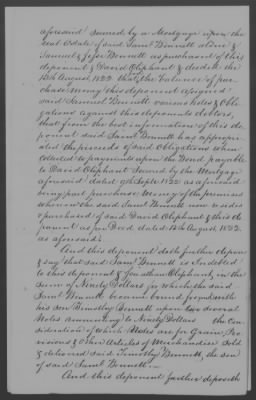 aforesaid secured by a Mortgage upon the
real Estate of said Saml Bennett alone &
Samuel & Jesse Bennett as purchased of this
deponent & David Oliphant & dated the
13th August 1822 that the balance of pur-
chase money this deponent assigned
said Samuel Bennett various notes & Obli-
gations against this deponents debtors,
that from the best information of this de-
ponent said Saml Bennett has appropri-
ated the proceeds of said Obligations when
collected to payments upon the Bond payable
to David Oliphant secured by the Mortgage
aforesaid dated Sept 1822 as aforesaid
being part purchase money of the premises
whereon the said Saml Bennett now resides
& purchased of said David Oliphant & this de-
ponent as per Deed dated 13th August 1822.
as aforesaid.
And this deponent doth further depose
& say that said Saml Bennett is indebted
to this deponent & Jonathan Oliphant, in the
sum of Ninety Dollars for which the said
Saml Bennett became bound for & with
his son Timothy Bennett upon two several
Notes amounting to Ninety Dollars the Con-
sideration of which Notes are for Grain, Pro
visions & Other Articles of Merchandise sold
& delivered said Timothy Bennett, the son
of said Saml Bennett.—
And this deponent further deposeth